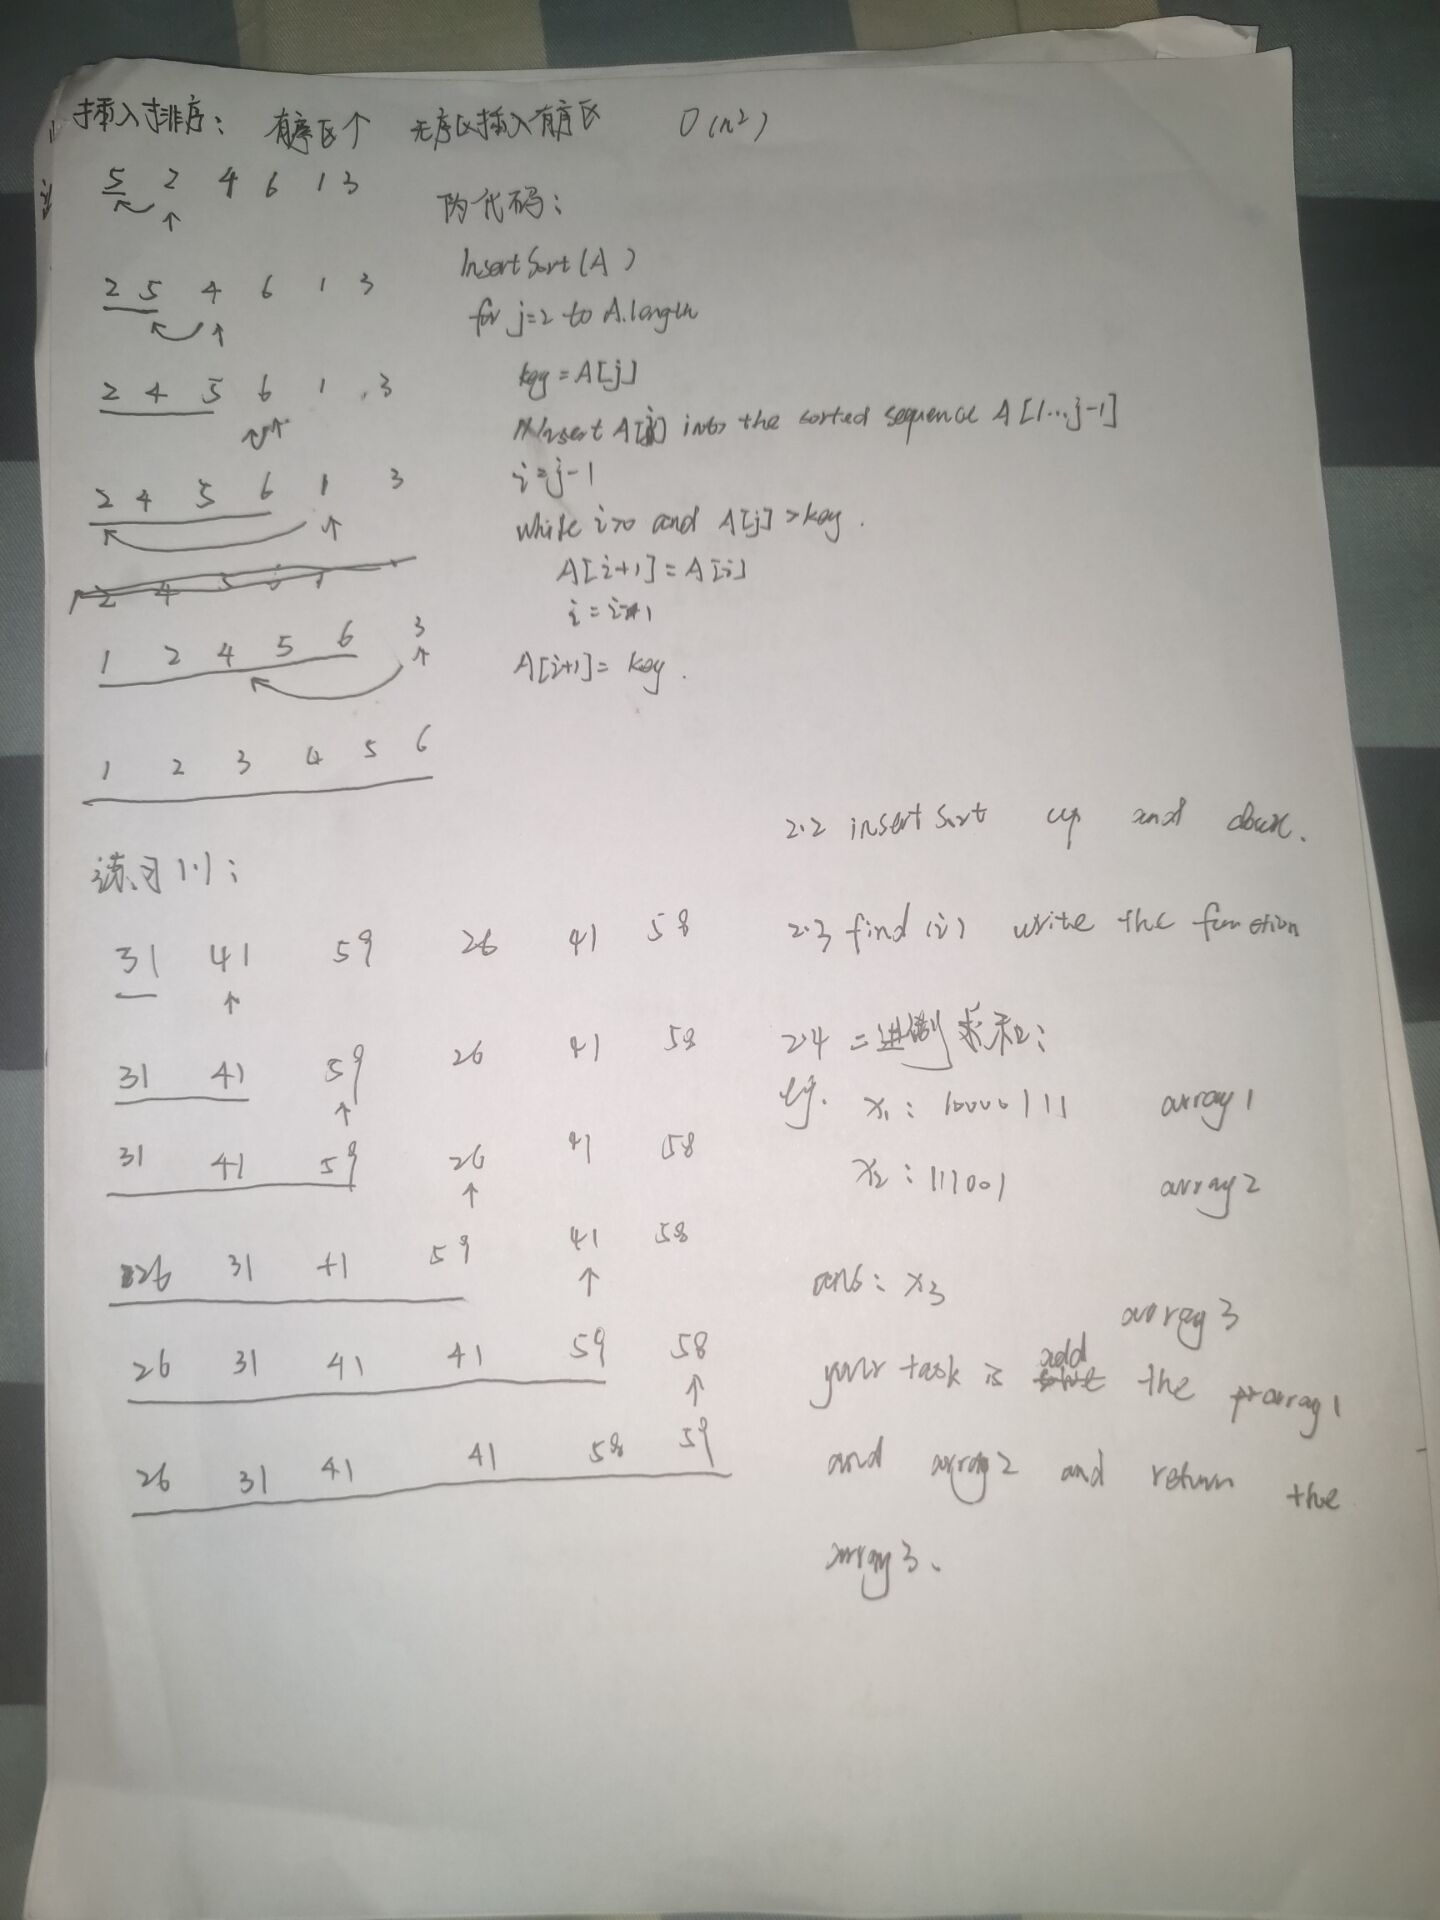 插入排序： 有序区个 无序区插入有序区 O(n²)
5 2 4 6 1 3
2 5 4 6 1 3
2 4 5 6 1 3
2 4 5 6 1 3
2 4 5 6 1
1 2 4 5 6 3
1 2 3 4 5 6
伪代码：
InsertSort(A)
for j=2 to A.length
key = A[j]
Insert A[j] into the sorted sequence A[1...j-1]
i=j-1
while i>0 and A[j] >key.
A[i+1] = A[i]
i = i-1
A[i+1] = key.
练习1.1：
31 41 59 26 41 58
31 41 59 26 41 58
31 41 59 26 41 58
26 31 41 59 41 58
26 31 41 41 59 58
26 31 41 41 58 59
2.2 insert sort up and down.
2.3 find(i) write the function
2.4 二进制求和：
eg. x₁: 10000111 array1
x₂: 111001 array2
ans: x3 array3
your task is add the array1
and array2 and return the
array3.